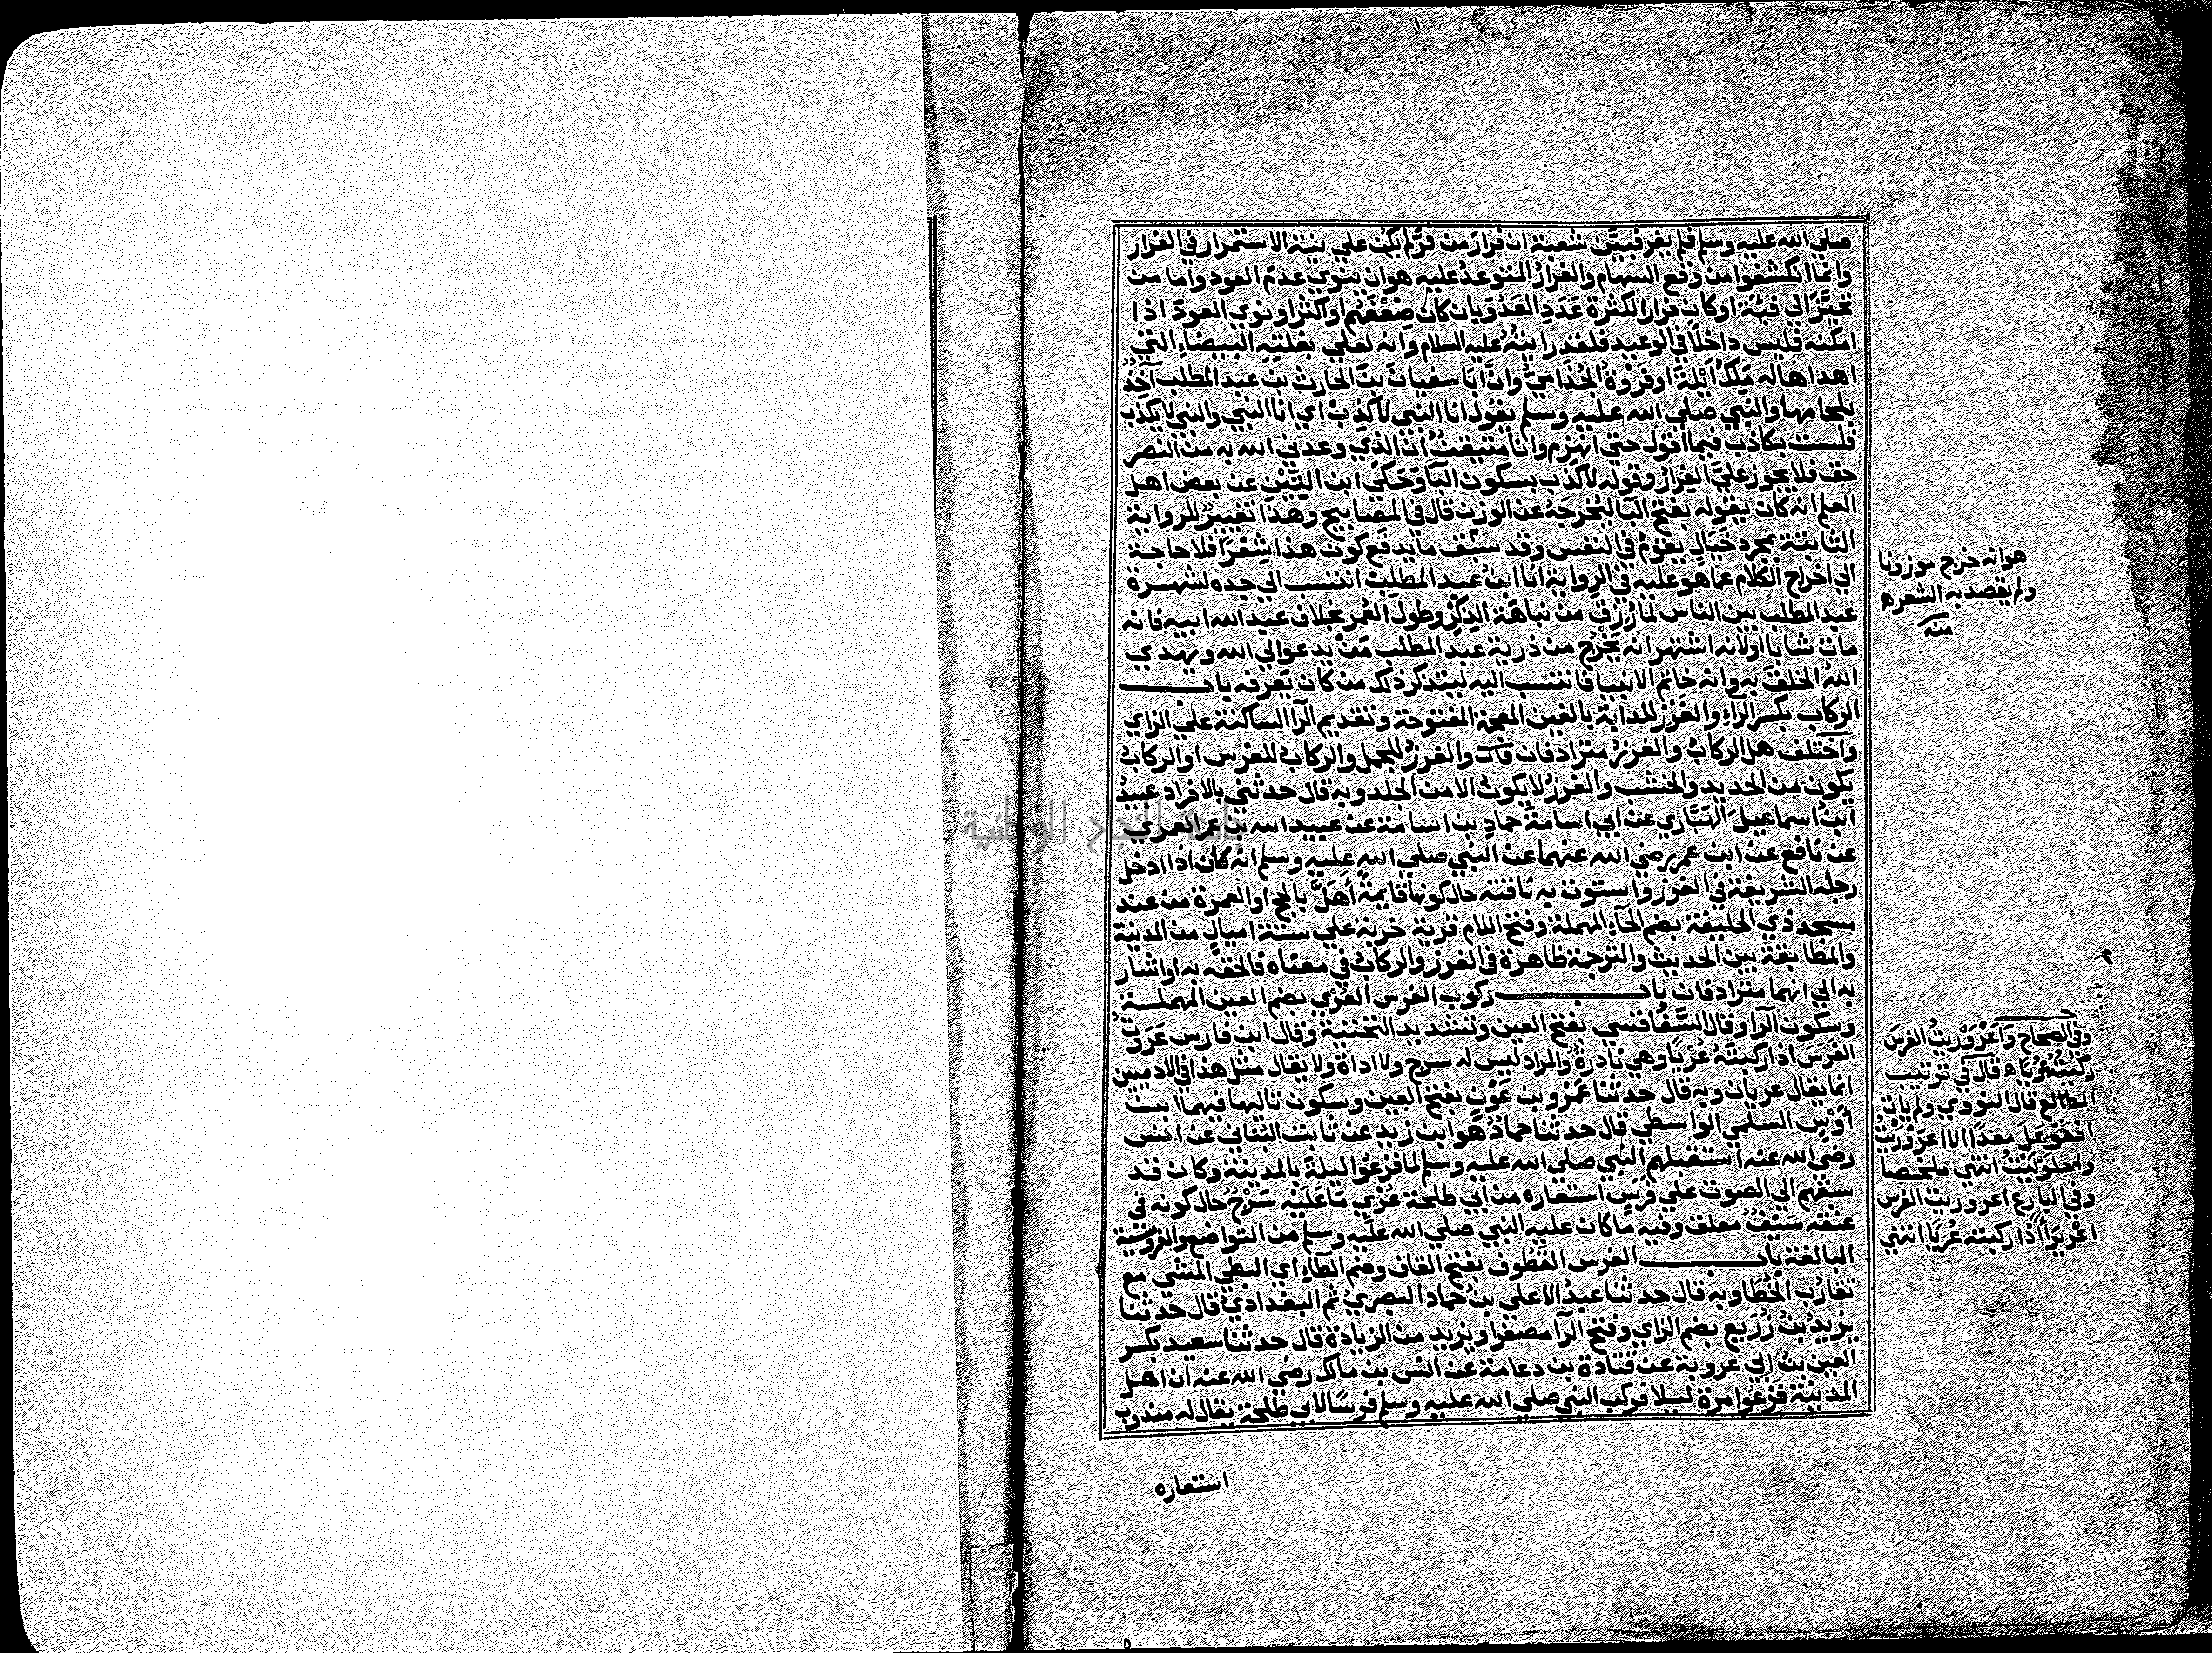 صلي الله عليه وسلم فلم يفر فبيّن شعبة ان فرار من فرّ لم يكن علي نية الاستمرار في الفرار
وانما انكشفوا من وقع السهام والفرار المتوعد عليه هو ان ينوي عدم العود واما من
تحيّز الي فئة او كان فرار لكثرة عدد العدو بان كان ضعفهم او اكثر او نوي العود اذا
امكنه فليس داخلا في الوعيد فلقد رايته عليه السلام وانه لعلي بغلته البيضاء التي
اهداها له ملك ايلة او فروة الجذامي وانّ ابا سفيان بن الحارث بن عبد المطلب اخذ
بلجامها والنبي صلي الله عليه وسلم يقول انا النبي لا كذب اي انا النبي والنبي لا يكذب
فلست بكاذب فيما اقول حتي انهزم وانا متيقن ان الذي وعدني الله به من النصر
حق فلا يجوز عليّ الفرار وقوله لا كذب بسكون البا وحكي ابن التين عن بعض اهل
العلم انه كان يقوله بفتح البا ليخرجه عن الوزن قال في المصابيح وهذا تغيير للرواية
الثابتة بمجرد خيال يقوم في النفس وقد سبق ما يدفع كون هذا شعرا فلا حاجة
الي اخراج الكلام عما هو عليه في الرواية انا ابن عبد المطلب انتسب الي جده لشهرة
عبد المطلب بين الناس لما رزق من نباهة الذكر وطول العمر بخلاف عبد الله ابيه فانه
مات شابا او لانه اشتهر انه يخرج من ذرية عبد المطلب من يدعو الي الله ويهدي
الله الخلق به وانه خاتم الانبيا فانتسب اليه ليتذكر ذلك من كان يعرفه باب
الركاب بكسر الراء والغرز للدابة بالغين المعجمة المفتوحة وتقديم الرا الساكنة علي الزاي
واختلف هل الركاب والغرز مترادفان والغرز للجمل والركاب للفرس او الركاب
يكون من الحديد والخشب والغرز لا يكون الا من الجلد وبه قال حدثني بالافراد عبيد
ابن اسماعيل الهباري عن ابي اسامة حماد بن اسامة عن عبيد الله بن عمر العمري
عن نافع عن ابن عمر رضي الله عنهما عن النبي صلي الله عليه وسلم انه كان اذا ادخل
رجله الشريفة في الغرز واستوت به ناقته حال كونها قايمة اهلّ بالحج او العمرة من عند
مسجد ذي الحليفة بضم الحاء المهملة وفتح اللام قرية خربة علي ستة اميال من المدينة
والمطابقة بين الحديث والترجمة ظاهرة في الغرز والركاب في معناه فالحقه به او اشار
به الي انهما مترادفان باب ركوب الفرس العري بضم العين المهملة
وسكون الرا وقال السفاقسي بفتح العين وتشديد التحتية وقال ابن فارس عروت
الفرس اذا ركبته عريا وهي نادرة والمراد ليس له سرج ولا اداة ولا يقال مثل هذا في الادميين
انما يقال عريان وبه قال حدثنا عمرو بن عون بفتح العين وسكون تاليها فيهما ابن
أوس السلمي الواسطي قال حدثنا حماد هو ابن زيد عن ثابت البناني عن انس
رضي الله عنه استقبلهم النبي صلي الله عليه وسلم لما فزعوا ليلة بالمدينة وكان قد
سبقهم الي الصوت علي فرس استعاره من ابي طلحة عري ما عليه سرج حال كونه في
عنقه سيف معلق وفيه ما كان عليه النبي صلي الله عليه وسلم من التواضع والفروسية
البالغة باب الفرس القطوف بفتح القاف وضم الطاء اي البطي المشي مع
تقارب الخطا وبه قال حدثنا عبد الاعلي بن حماد البصري ثم البغدادي قال حدثنا
يزيد بن زريع بضم الزاي وفتح الرا مصغرا ويزيد من الزيادة قال حدثنا سعيد بكسر
العين بن ابي عروبة عن قتادة بن دعامة عن انس بن مالك رضي الله عنه ان اهل
المدينة فزعوا مرة ليلا فركب النبي صلي الله عليه وسلم فرسا لابي طلحة يقال له مندوب
استعاره
هو انه خرج موزونا
ولم يقصد به الشعر ه
منه
وفي الصحاح واعروريت الفرس
ركبته عريا ه قال في ترتيب
المطالع قال النووي ولم يات
افعوعل معدّا الا اعروريت
واحلوليت انتهي ملخصا
وفي البارع اعروريت الفرس
اعريرا اذا ركبته عريا انتهي